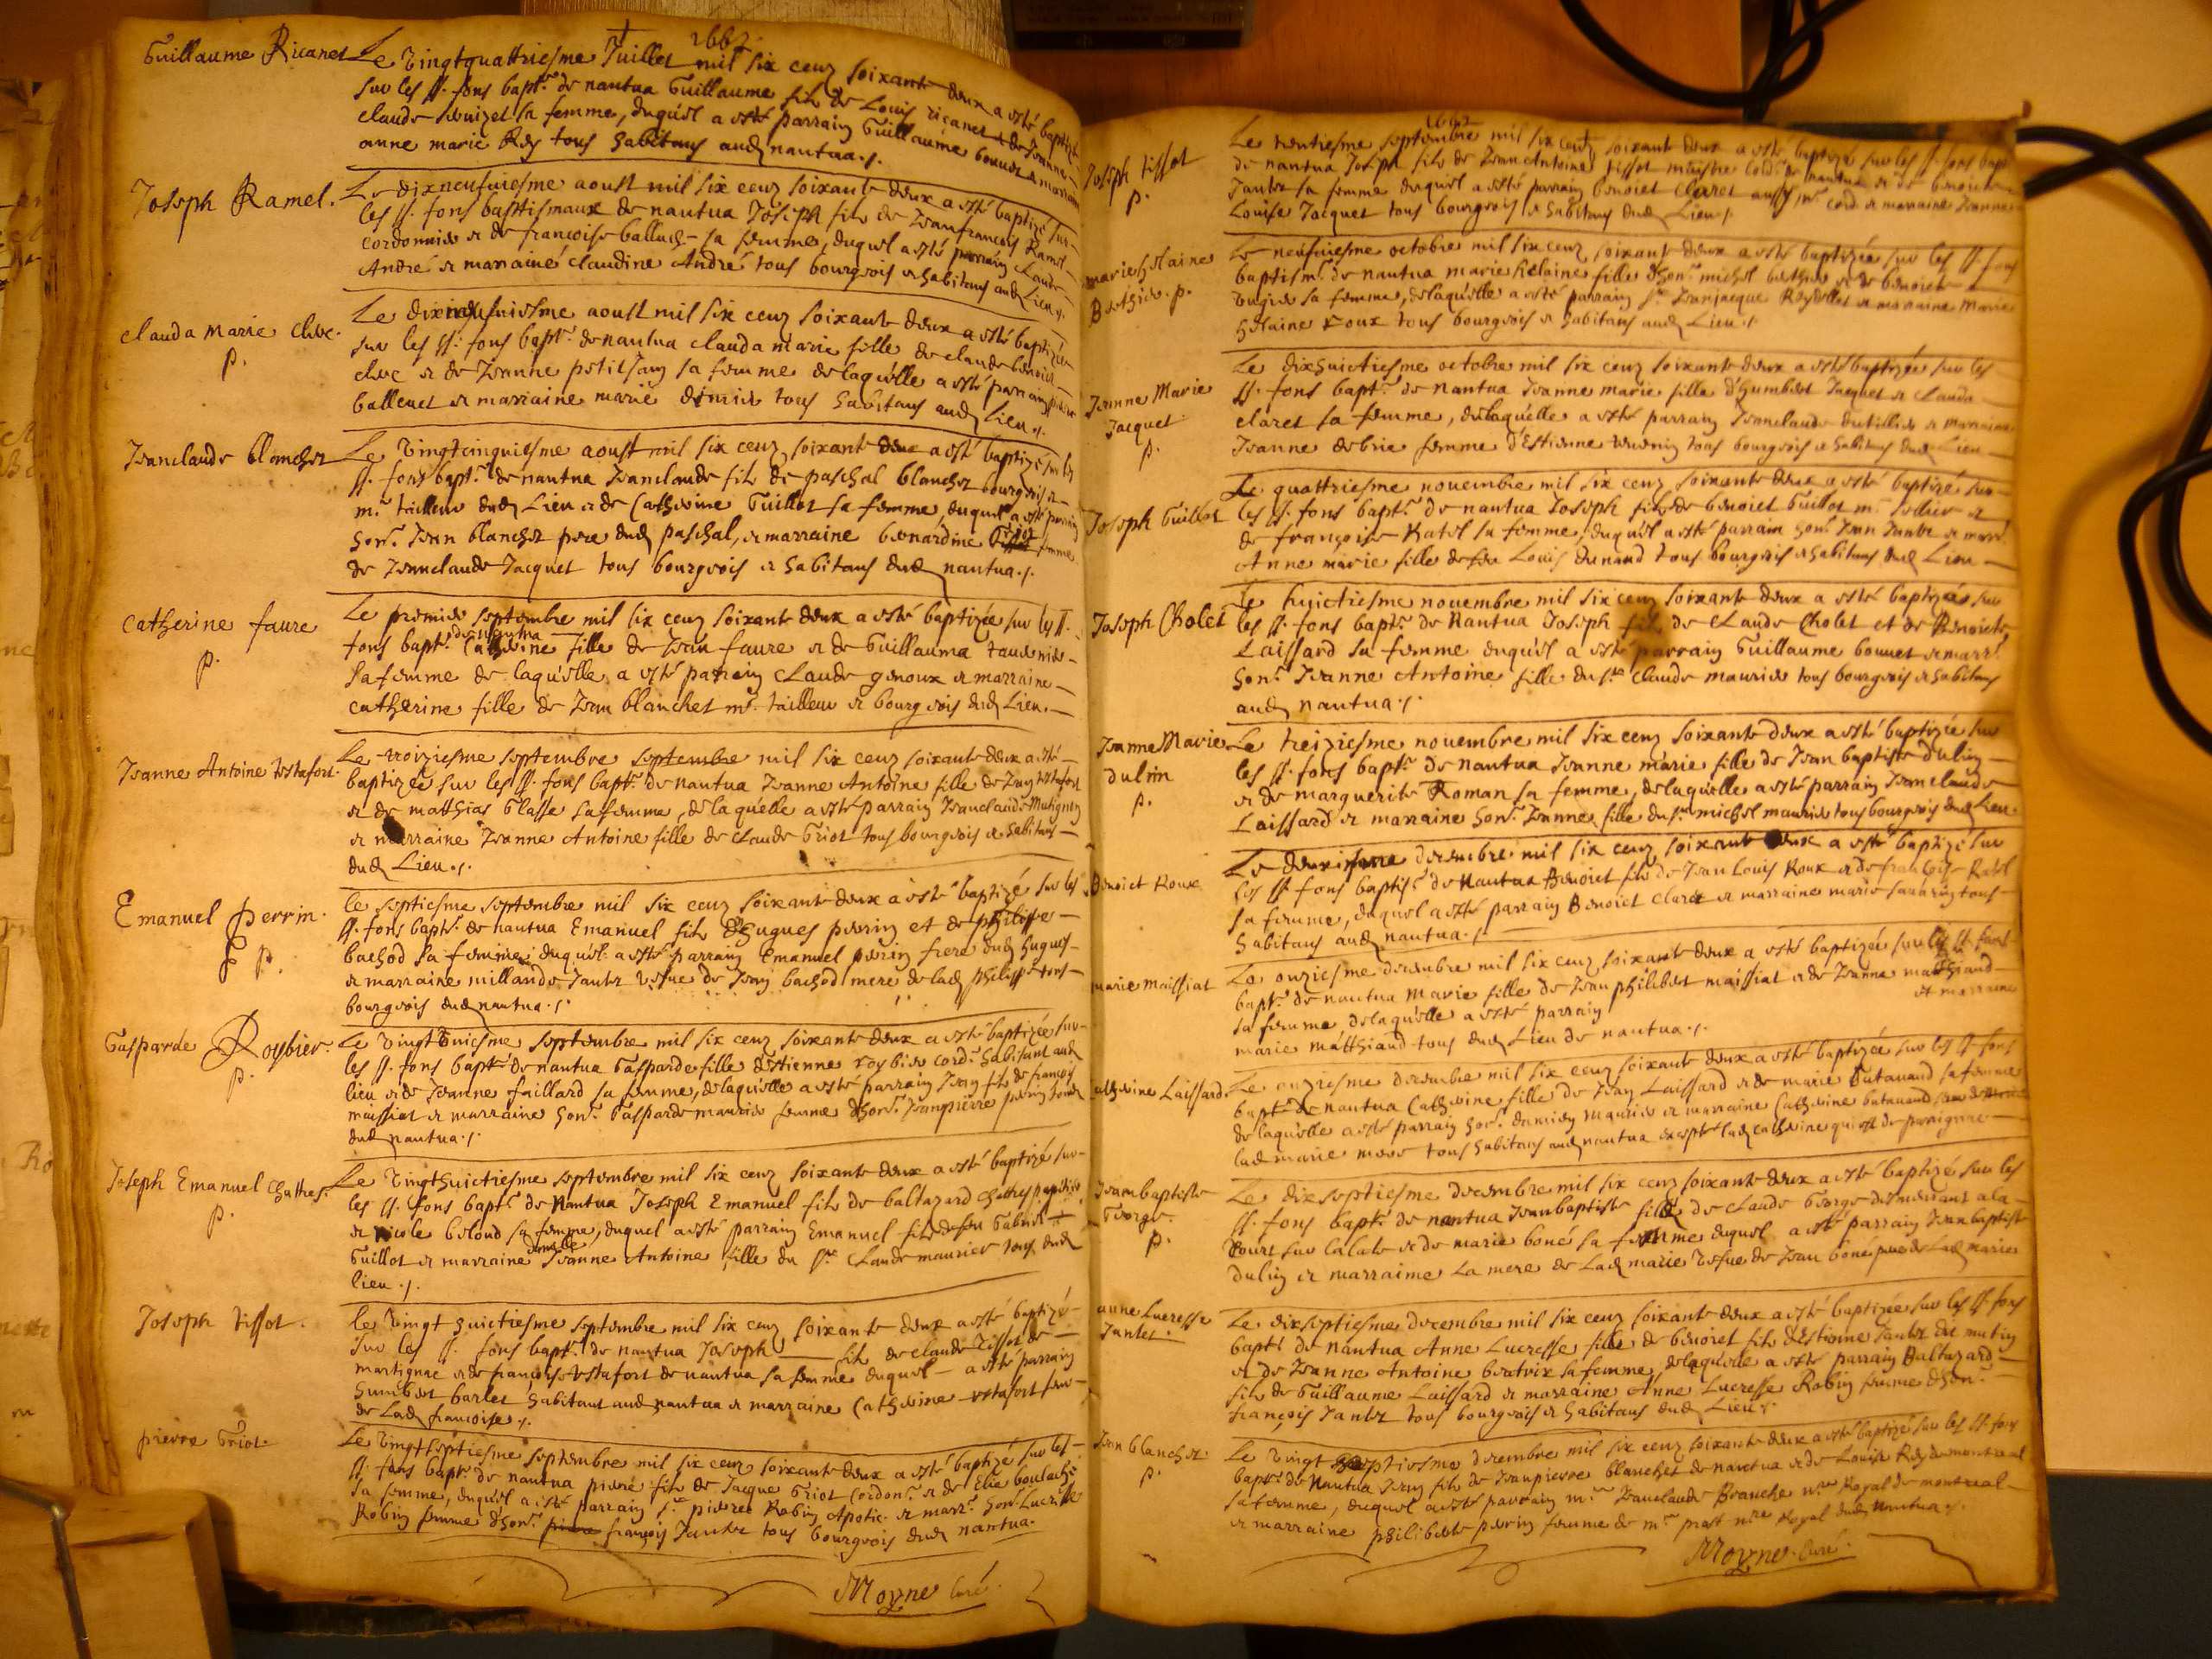 1662.
Guillaume Ricanet
Le vingtquattriesme Juillet mil six cens soixante deux a esté baptizé
sur les ss. fons bapt. de nantua Guillaume filz de Louis ricanet et de Jeanne
claude sa femme, duquel a esté parrain Guillaume bonnet & marraine
anne marie Rey tous habitans aud nantua./.
Joseph Ramel.
Le dixneufuiesme aoust mil six cens soixante deux a esté baptizé sur
les ss. fons baptismaux de nantua Joseph filz de Jean francois Ramel
cordonnier et de francoise balluet sa femme, duquel a esté parrain Claude
André et marraine claudine André tous bourgeois et habitans aud Lieu./.
Clauda Marie Clerc.
p.
Le dixneufuiesme aoust mil six cens soixante deux a esté baptizée
sur les ss. fons bapt. de nantua clauda marie fille de claude benoict
clerc et de Jeanne petitjean sa femme de laquelle a esté parrain pierre
balleuet et marraine marie tous habitans aud Lieu./.
Jeanclaude blanchet
Le vingtcinquiesme aoust mil six cens soixante deux a esté baptizé sur les
ss. fons bapt. de nantua Jeanclaude filz de paschal blanchet bourgeois et
m.e tailleur dud Lieu et de Catherine Guillot sa femme, duquel a esté parrain
hon. Jean blanchet pere dud paschal, et marraine bernardine femme
de Jeanclaude Jacquet tous bourgeois et habitans dud nantua./.
Catherine faure
p.
Le premier septembre mil six cens soixante deux a esté baptizée sur les ss.
fons bapt. de nantua Catherine fille de Jean faure et de Guillauma tauernier
sa femme de laquelle a esté parrain Claude genoux et marraine
catherine fille de Jean blanchet m.e tailleur et bourgeois dud Lieu.
Jeanne Antoine testafort.
Le troiziesme septembre septembre mil six cens soixante deux a esté
baptizée sur les ss. fons bapt. de nantua Jeanne Antoine fille de Jean testafort
et de matthias Glasse sa femme, de laquelle a esté parrain Jeanclaude
et marraine Jeanne Antoine fille de Claude Griot tous bourgeois et habitans
dud Lieu./.
Emanuel perrin.
p.
Le septiesme septembre mil six cens soixante deux a esté baptizé sur les
ss. fons bapt. de nantua Emanuel filz d'hugues perrin et de philippe
bachod sa femme, duquel a esté parrain Emanuel perrin frere dud hugues
et marraine millande Jantet vefue de Jean bachod mere de lad philippe tous
bourgeois dud nantua./.
Gasparde Roybier.
p.
Le vingt septembre mil six cens soixante deux a esté baptizée sur
les ss. fons bapt. de nantua Gasparde fille destienne roybier cord. habitant aud
lieu et de Jeanne faillard sa femme, de laquelle a esté parrain Jean filz de francois
maissiat et marraine hon. Gasparde maurier femme d'hon. Jeanpierre perrin tous
dud nantua./.
Joseph Emanuel Chattres.
p.
Le vingthuictiesme septembre mil six cens soixante deux a esté baptizé sur
les ss. fons bapt. de Nantua Joseph Emanuel filz de baltazard Chattres
et Nicole beloud sa femme, duquel a esté parrain Emanuel filz de feu Gabriel
Guillot et marraine damlle Jeanne Antoine fille du sr. Claude maurier tous dud
lieu./.
Joseph tissot.
Le vingt huictiesme septembre mil six cens soixante deux a esté baptizé
sur les ss. fons bapt. de nantua Joseph filz de claude Tissot de
martignac et de francoise testafort de nantua sa femme duquel a esté parrain
humbert barlet habitant aud nantua et marraine Catherine testafort
de Lad francoise./.
pierre Griot.
Le vingtseptiesme septembre mil six cens soixante deux a esté baptizé sur les
ss. fons bapt. de nantua pierre filz de Jacque Griot Cordon. et de Elie boulaché
sa femme, duquel a esté parrain s.r pierre Robin Apotic. et marr. hon. Lucresse
Robin femme d'hon. pierre françois Jantet tous bourgeois dud nantua.
Moyne Curé.
1662
Joseph tissot
p.
Le trentiesme septembre mil six cens soixante deux a esté baptizé sur les ss. fons bapt
de nantua Joseph filz de Jean Antoine tissot maistre cord. de nantua et de benoicte
Jantet sa femme duquel a esté parrain benoict Claret aussy m.e cord. et marraine Jeanne
Louise Jacquet tous bourgeois et habitans dud Lieu./.
marie helaine
Berthier. p.
Le neufuiesme octobre mil six cens soixante deux a esté baptizée sur les ss. fons
baptism. de nantua marie helaine fille d'hon. michel berthier et de benoicte
sa femme, de laquelle a esté parrain s.r Jeanjacque Reydellet et marraine Marie
helaine roux tous bourgeois et habitans aud Lieu./.
Jeanne Marie
Jacquet
p.
Le dixhuictiesme octobre mil six cens soixante deux a esté baptizée sur les
ss. fons bapt. de nantua Jeanne marie fille d'humbert Jacquet et Clauda
claret sa femme, de laquelle a esté parrain Jeanclaude et marraine
Jeanne debrie femme d'Estienne tous bourgeois et habitans dud Lieu
Joseph Guillot
Le quattriesme nouembre mil six cens soixante deux a esté baptizé sur
les ss. fons bapt. de nantua Joseph filz de benoict Guillot m.e sellier et
de françoise Ratel sa femme, duquel a esté parrain hon. Jean Jantet et marr.
Anne marie fille de feu Louis dunand tous bourgeois et habitans dud Lieu
Joseph Cholet
Le huictiesme nouembre mil six cens soixante deux a esté baptizé sur
les ss. fons bapt. de Nantua Joseph filz de Claude Cholet et de Benoicte
Laissard sa femme duquel a esté parrain Guillaume bonnet et marr.
hon. Jeanne Antoine fille du s.r Claude maurier tous bourgeois et habitans
aud nantua./.
Jeanne Marie
dulin
p.
Le treiziesme nouembre mil six cens soixante deux a esté baptizée sur
les ss. fons bapt. de nantua Jeanne marie fille de Jean baptiste dulin
et de marguerite Roman sa femme, de laquelle a esté parrain Jeanclaude
Laissard et marraine hon. Jeanne fille du s.r michel maurier tous bourgeois dud Lieu.
Benoict Roux
Le deuxiesme decembre mil six cens soixante deux a esté baptizé sur
les ss. fons baptis. de Nantua Benoict filz de Jean Louis Roux et de francoise Ratel
sa femme, duquel a esté parrain Benoict Claret et marraine marie tous
habitans aud nantua./.
marie maissiat
Le onziesme decembre mil six cens soixante deux a esté baptizée sur les ss. fons
bapt. de nantua Marie fille de Jean philibert maissiat et de Jeanne matthiand
sa femme, de laquelle a esté parrain et marraine
marie matthiand tous dud Lieu de nantua./.
catherine Laissard.
Le onziesme decembre mil six cens soixante deux a esté baptizée sur les ss. fons
bapt. de nantua Catherine fille de Jean Laissard et de marie Butauand sa femme
de laquelle a esté parrain hon. damien Maurier et marraine Catherine butauand
lad marie mere tous habitans aud nantua excepté lad catherine qui est de
Jeanbaptiste
George.
p.
Le dixseptiesme decembre mil six cens soixante deux a esté baptizé sur les
ss. fons bapt. de nantua Jeanbaptiste fille de Claude George demeurant a la
sur lalate et de marie boné sa femme duquel a esté parrain Jeanbaptiste
dulin et marraine La mere de Lad marie vefue de Jean boné pere de Lad marie
anne Lucresse
Jantet.
Le dixseptiesme decembre mil six cens soixante deux a esté baptizée sur les ss. fons
bapt. de nantua Anne Lucresse fille de benoict filz d'Estienne Jantet dit mutin
et de Jeanne Antoine beatrix sa femme, de laquelle a esté parrain Baltazard
filz de Guillaume Laissard et marraine Anne Lucresse Robin femme d'hon.
françois Jantet tous bourgeois et habitans dud Lieu./.
Jean blanchet.
p.
Le vingt septiesme decembre mil six cens soixante deux a esté baptizé sur les ss. fons
bapt. de Nantua Jean filz de Jeanpierre blanchet de nantua et de Louise Rey de montreal
sa femme, duquel a esté parrain m.e Jeanclaude Branche n.re Royal de montreal
et marraine philiberte perrin femme de m.e prost n.re Royal dud Nantua./.
Moyne Curé.